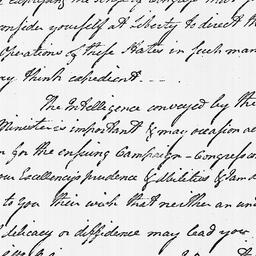 consider yourself at Liberty to direct th
Operations of these States in such man
ry think expedient. - - -
The Intelligence conveyed by the
Minister is important & may occasion a
n for the ensuing Campaign - Congress co
our Excellency's prudence & Abilities & I am d
to you their wish that neither an un
delicacy or diffidence may lead you